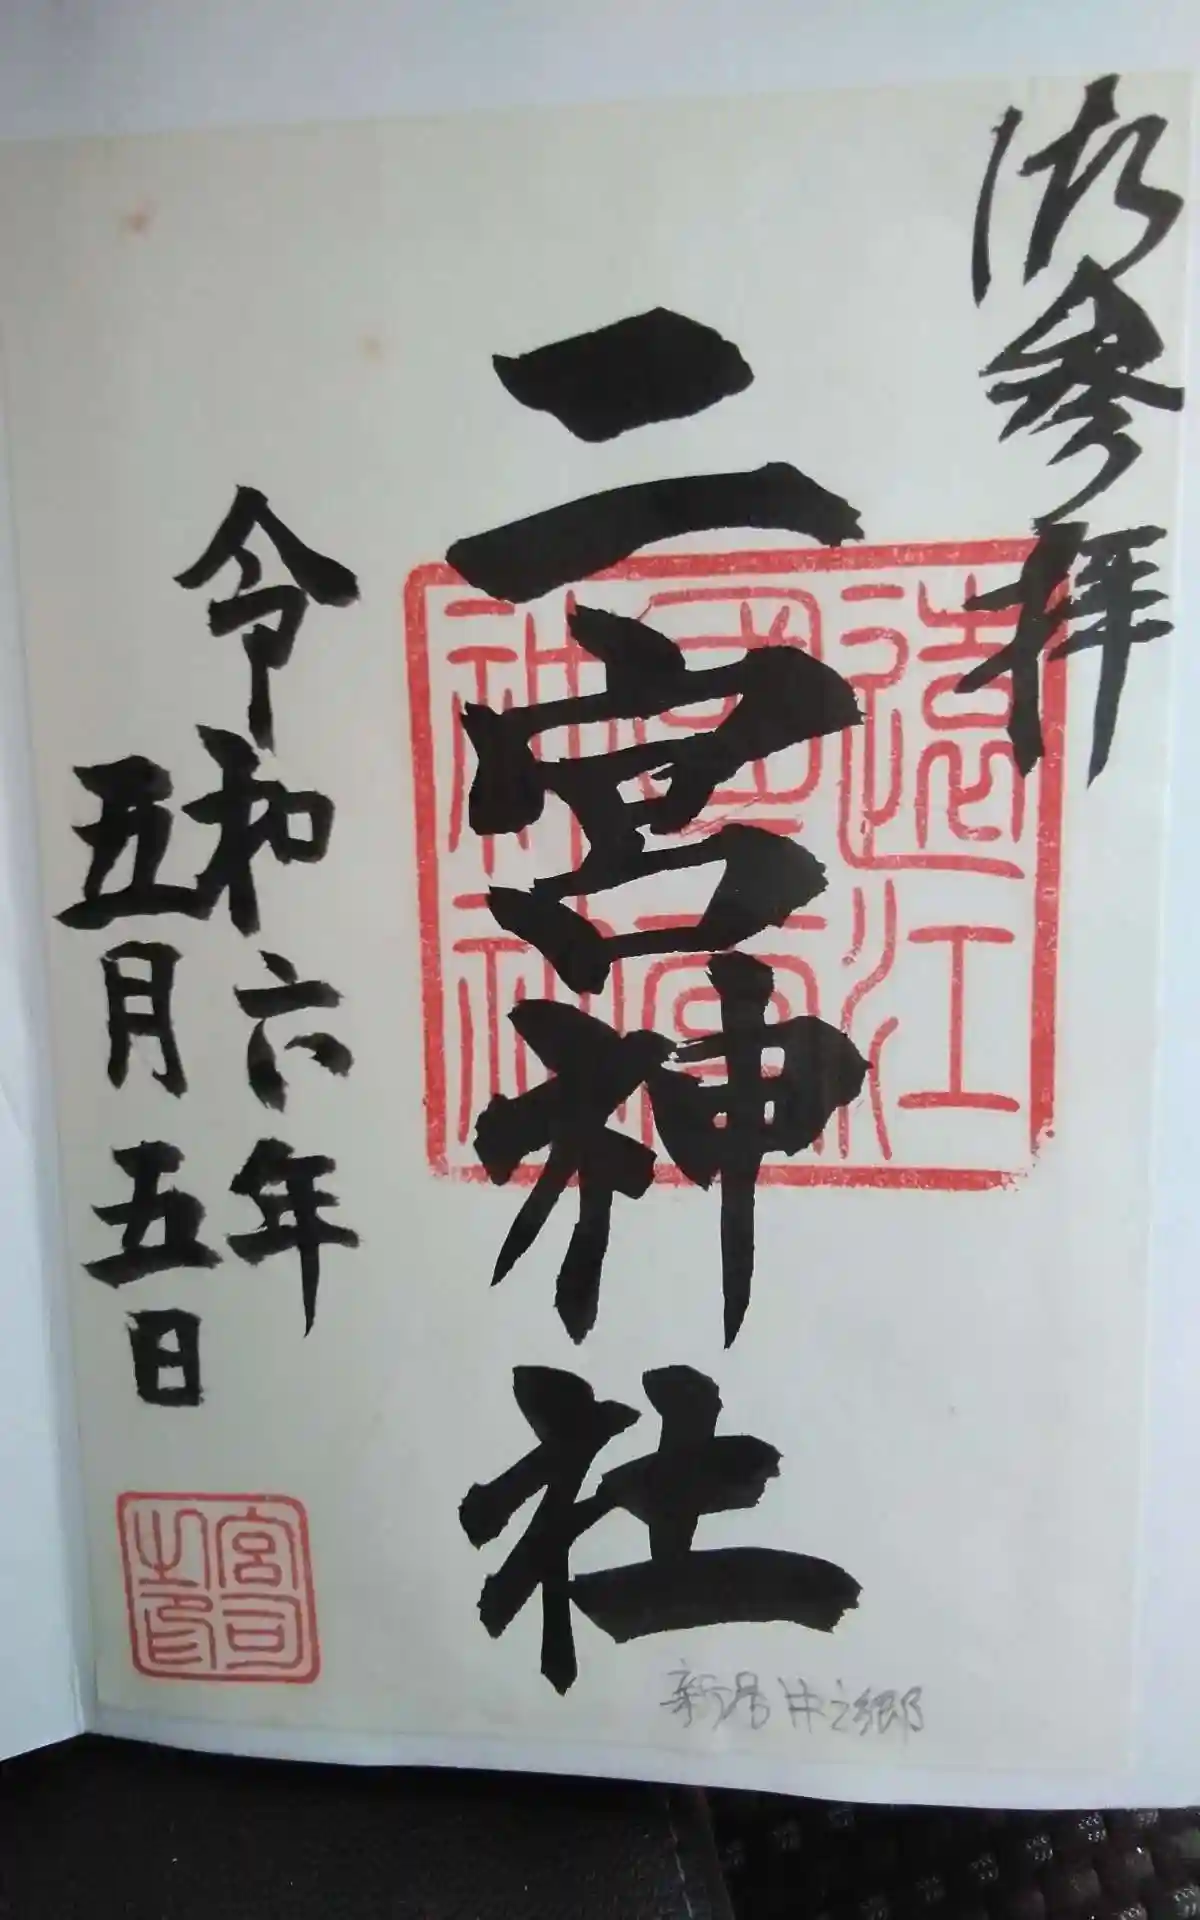 御参拝
二宮神社
遠江
國二宮
神社
令和六年
五月五日
宮司
之印
新居中之郷